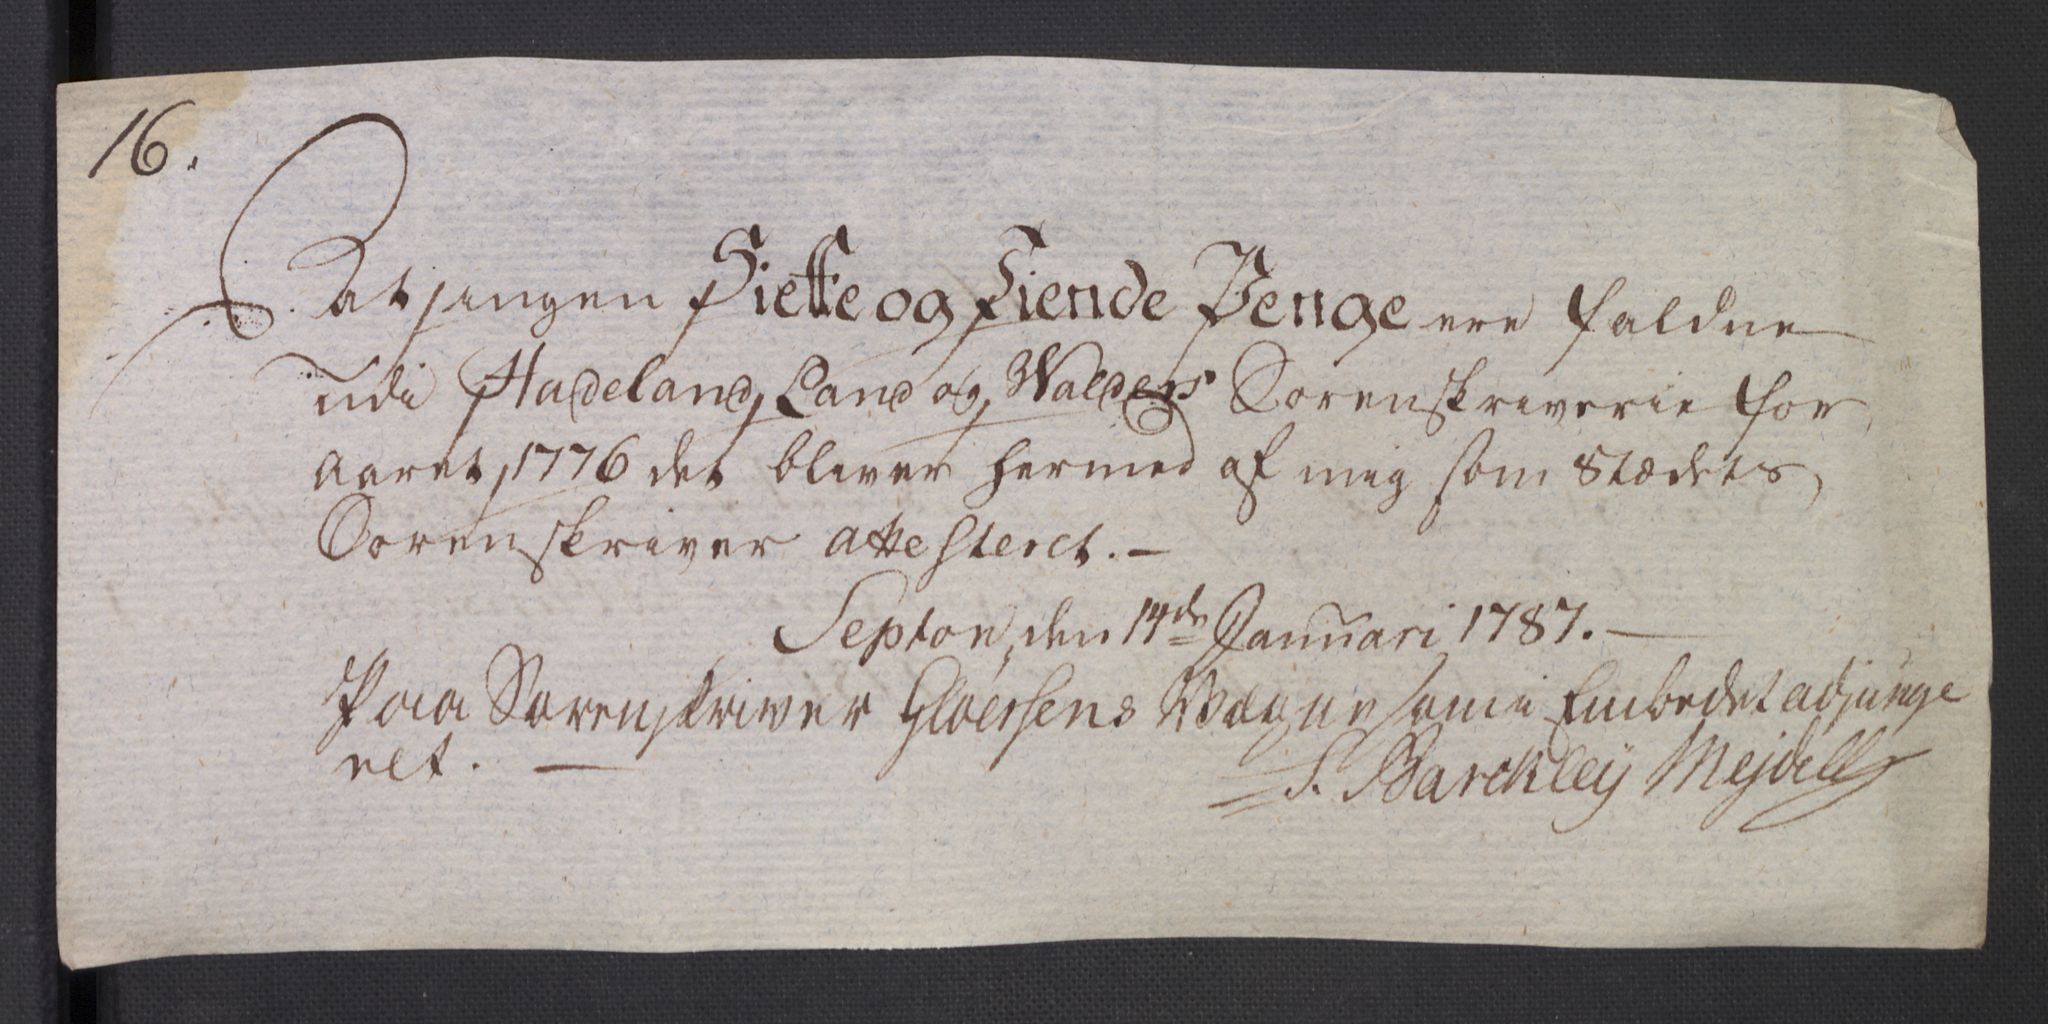 16.
At jngen Siette og Tiende Penge ere faldne
udi Hadeland, Land og Walders Sorenskriverie for
Aaret 1776 det bliver hermed af mig som Stædets
Sorenskriver attesteret. –
Septon den 14de Januari 1787. –
Paa Sorenskriver Gloersens Wægne som i Embedet adjunge
ret. –
S. Barckleÿ Mejdell